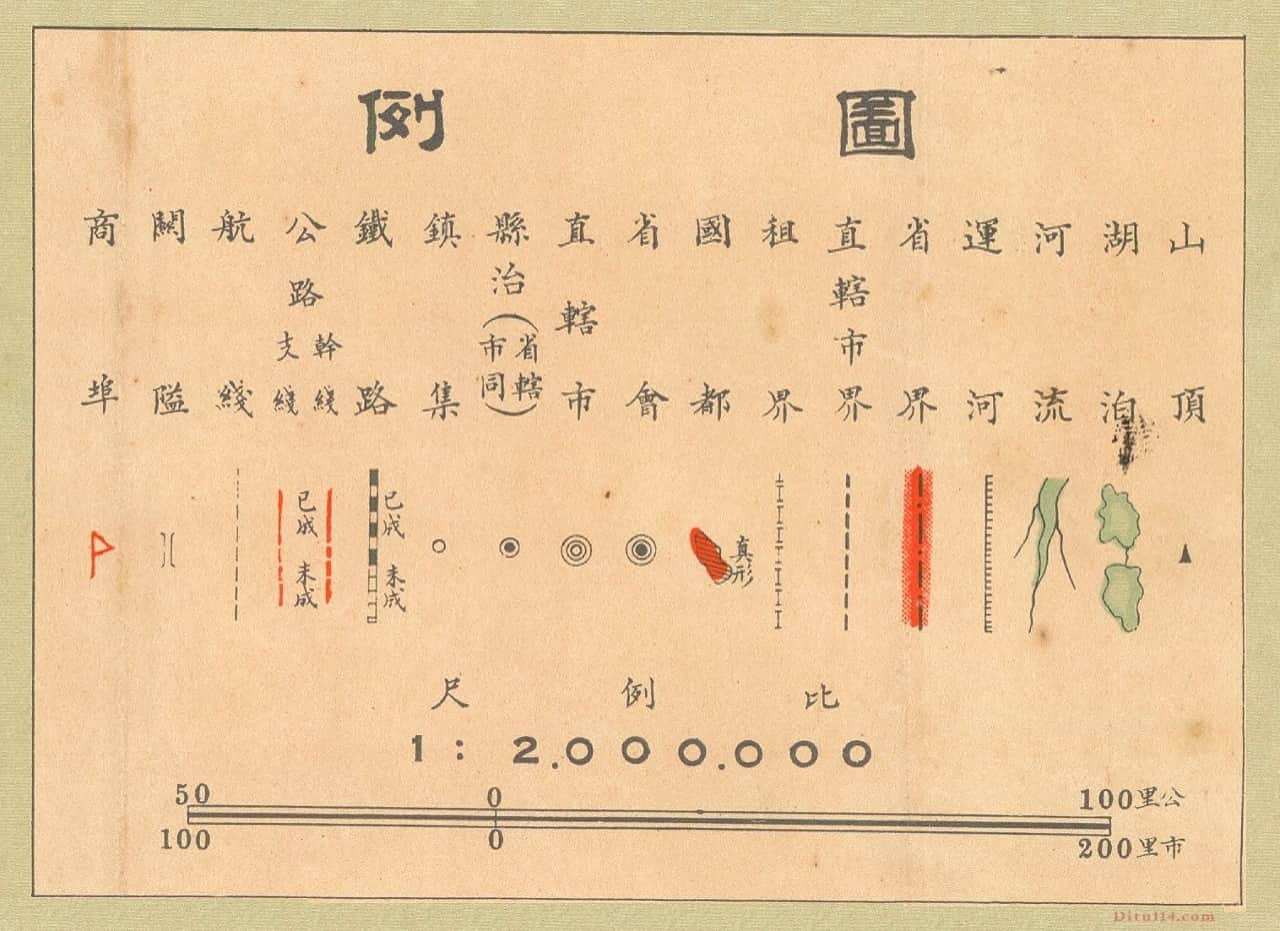 圖例
山頂
湖泊
河流
運河
省界
直轄市界
租界
國都
省會
直轄市
縣治(省轄市同)
鎮集
鐵路
公路幹綫支綫
航綫
關隘
商埠
真形
已成 未成
已成 未成
比例尺
1:2.000.000
50 0 100公里
100 0 200市里
Ditu114.com